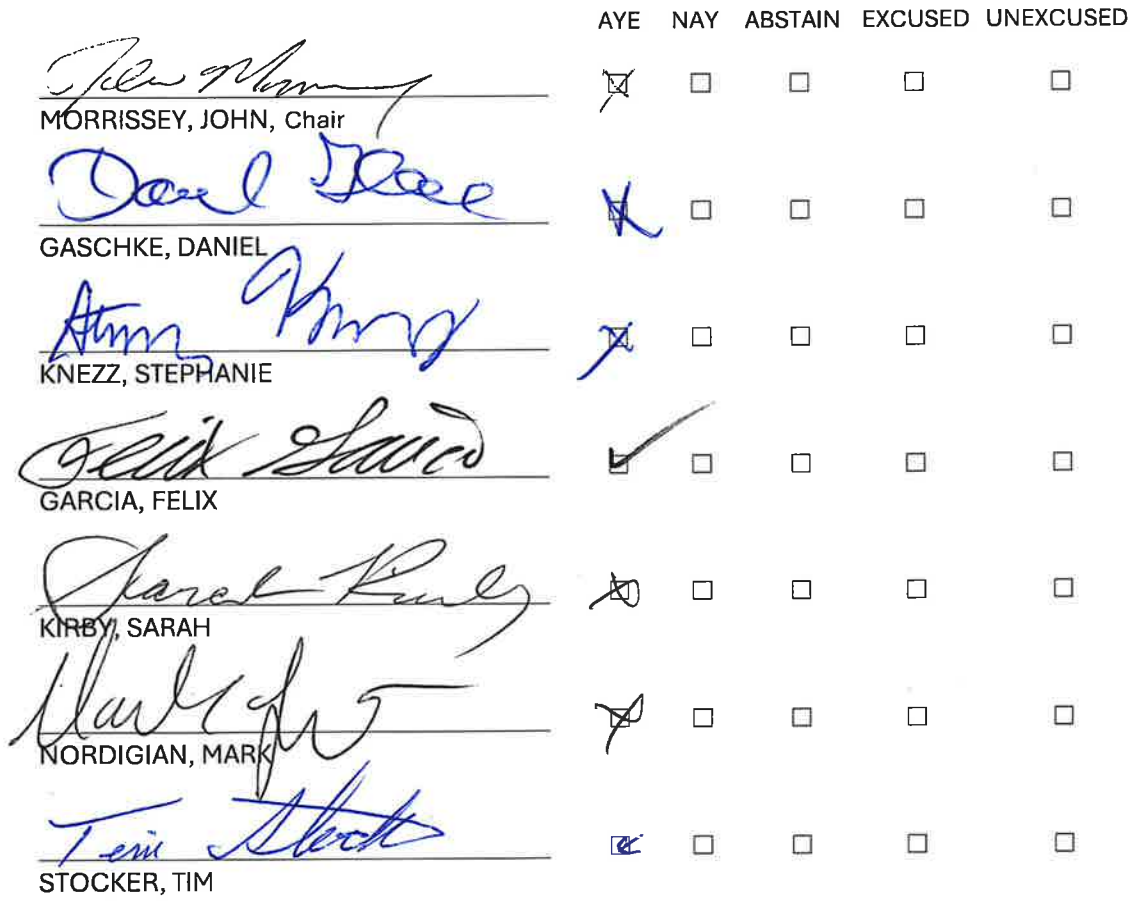 AYE NAY ABSTAIN EXCUSED UNEXCUSED
MORRISSEY, JOHN, Chair
GASCHKE, DANIEL
KNEZZ, STEPHANIE
Felix Garcia
GARCIA, FELIX
Sarah Kirby
KIRBY, SARAH
NORDIGIAN, MARK
Tim Stock
STOCKER, TIM